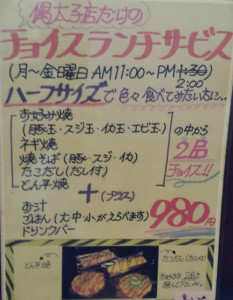 偶太子店だけの
チョイスランチサービス
(月~金曜日AM11:00~PM1:30)
2:00
ハーフサイズで色々食べてみたい方に..
お好み焼
(豚玉・スジ玉・イカ玉・エビ玉)
ネギ焼
焼そば(豚・スジ・イカ)
たこだし(だし付)
とん平焼
の中から
2品
チョイス!!
+(プラス)
お汁
ごはん(大中小がえらべます)
ドリンクバー
980円
とん平焼